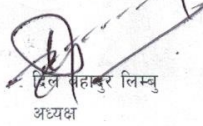 दिल बहादुर लिम्बु
अध्यक्ष